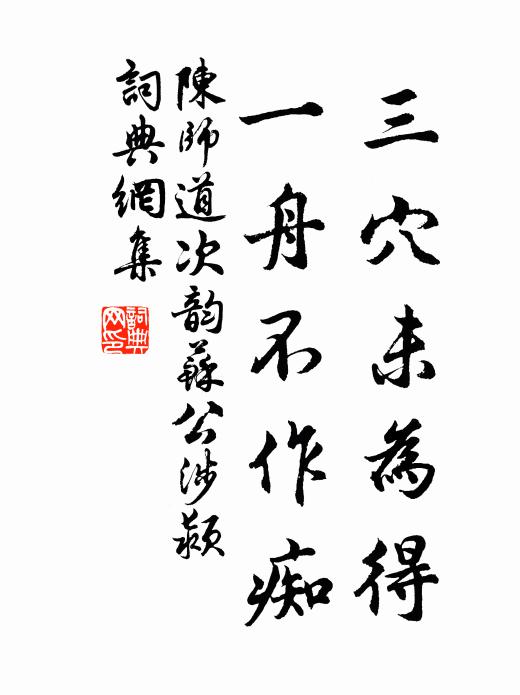 三穴未為得
一舟不作痴
陳師道次韵蘇公涉潁
詞典網集
詞典网印